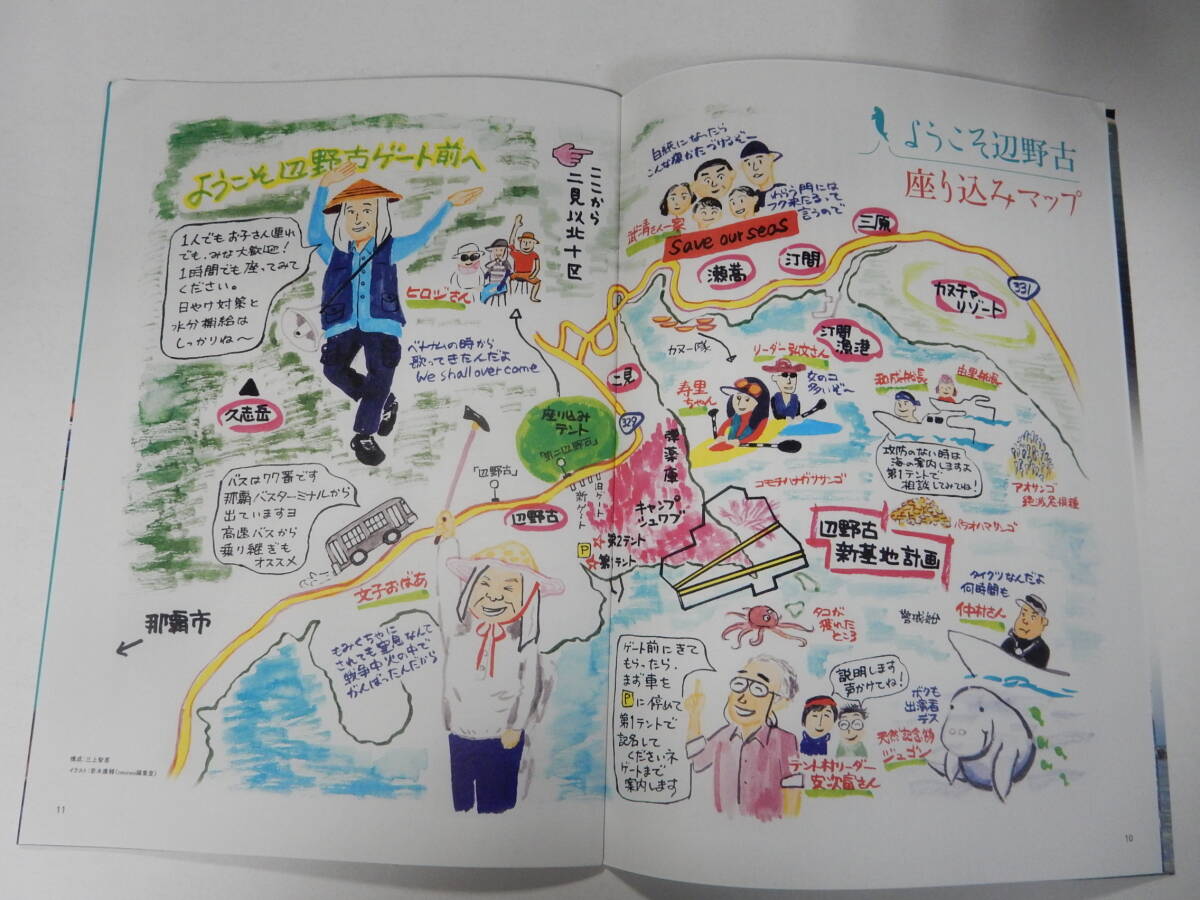 ようこそ辺野古
座り込みマップ
ようこそ辺野古ゲート前へ
1人でもお子さん連れ
でも、みな大歓迎！
1時間でも座ってみて
ください。
日やけ対策と
水分補給は
しっかりね〜
ヒロジさん
ここから
二見以北十区
ベトナムの時から
歌ってきたんだよ
We shall over come
久志岳
バスは77番です
那覇バスターミナルから
出ていますヨ
高速バスから
乗り継ぎも
オススメ
那覇市
文子おばあ
もみくちゃに
されても
戦争中火の中で
がんばったんだから
座り込み
テント
「辺野古」
辺野古
新ゲート
旧ゲート
P
第2テント
第1テント
二見
329
弾薬庫
キャンプ
シュワブ
白紙になったら
武清さん一家
わらう門には
フク来たるって
言うので
Save our seas
瀬嵩
汀間
三原
331
カヌチャ
リゾート
汀間
漁港
カヌー隊
リーダー弘文さん
寿里
ちゃん
女のコ
多いぞ〜
和成船長
由里船長
攻防のない時は
海の案内しますよ
第1テントで
相談してみてね！
アオサンゴ
絶滅危惧種
コモチハナガササンゴ
パラオハマサンゴ
辺野古
新基地計画
タイクツなんだよ
何時間も
仲村さん
警戒船
タコが
獲れた
ところ
ゲート前にきて
もらったら、
まず車を
Pに停めて
第1テントで
記名して
くださいネ
ゲートまで
案内します
説明します
声かけてね！
テント村リーダー
安次富さん
ボクも
出演者
デス
天然記念物
ジュゴン
構成：三上智恵
11
10